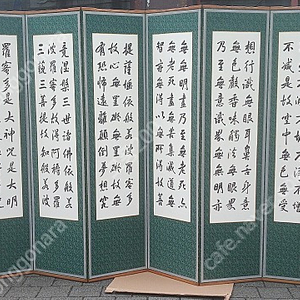 不減是故空中無色無受
想行識無眼耳鼻舌身意
無色聲香味觸法無眼界
乃至無意識界無無明亦
無無明盡乃至無老死亦
無老死盡無苦集滅道無
智亦無得以無所得故菩
提薩埵依般若波羅蜜多
故心無罣礙無罣礙故無
有恐怖遠離顛倒夢想究
竟涅槃三世諸佛依般若
波羅蜜多故得阿耨多羅
三藐三菩提故知般若波
羅蜜多是大神呪是大明
cafe.nave